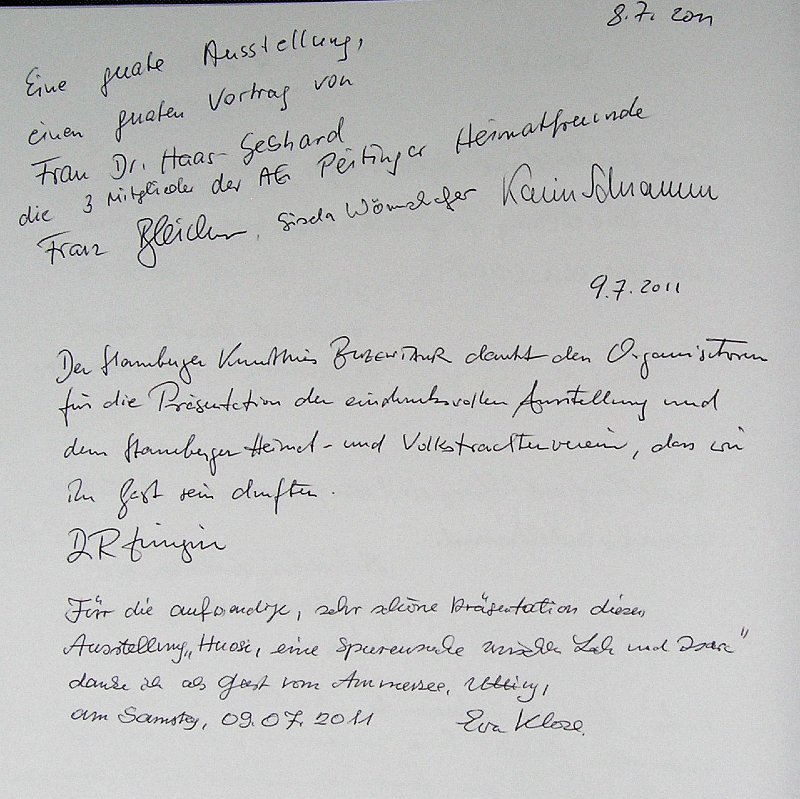 8.7.2011
Eine guate Ausstellung,
einen guaten Vortrag von
Frau Dr. Haas-Gebhard
die 3 Mitglieder der AG Peitinger Heimatfreunde
Franz , Gisela Karin Schramm
9.7.2011
Der Starnberger Kunstkreis BUZENTAUR dankt den Organisatoren
für die Präsentation der eindrucksvollen Ausstellung und
dem Starnberger Heimat- und Volkstrachtenverein, dass wir
ihr Gast sein durften.
Für die aufwendige, sehr schöne Präsentation dieser
Ausstellung „Huosi, eine Spurensuche zwischen Lech und Isar"
danke ich als Gast vom Ammersee, Utting,
am Samstag, 09.07.2011 Eva Klose